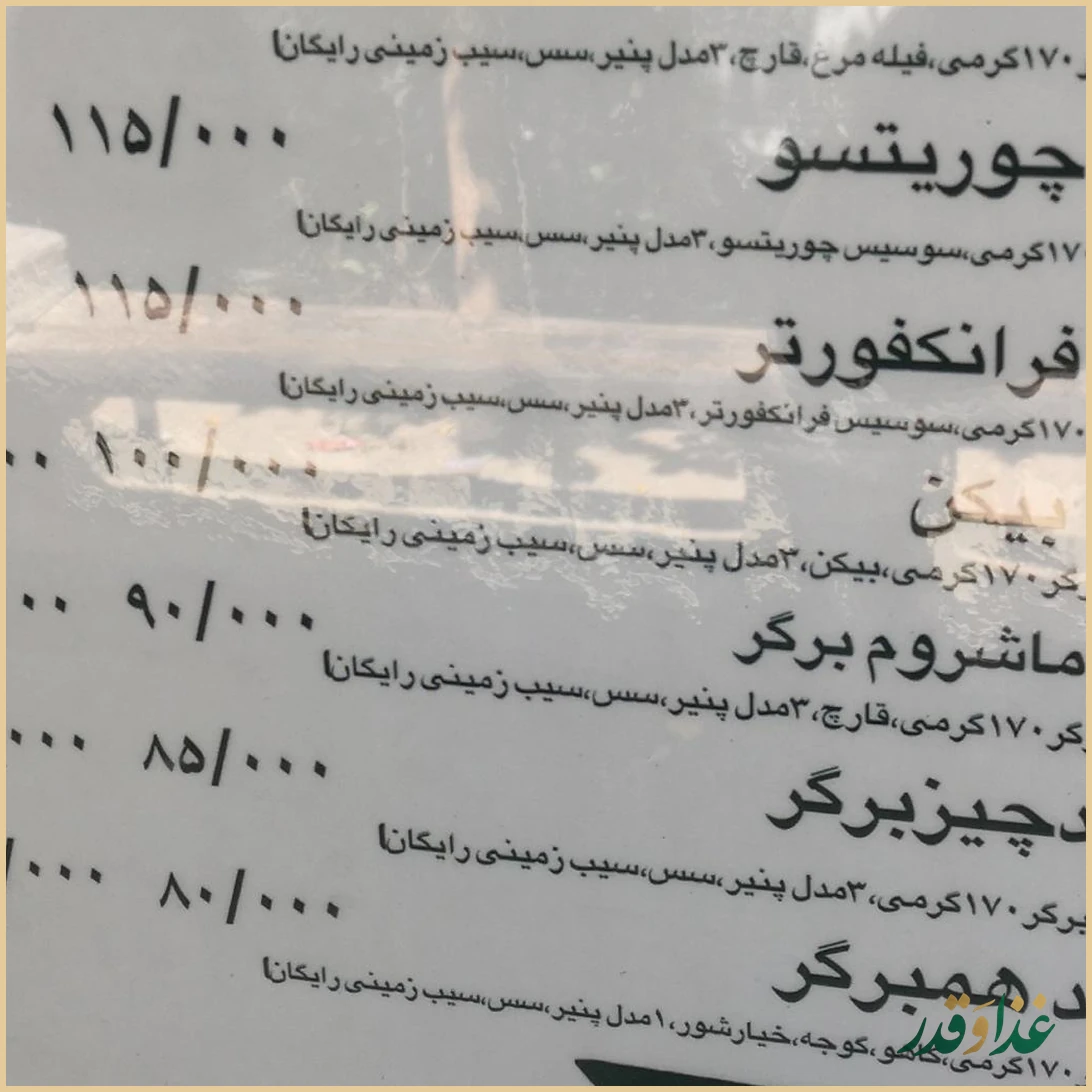 ۱۷۰گرمی،فیله مرغ،قارچ،۳مدل پنیر،سس،سیب زمینی رایگان)
چوریتسو ۱۱۵/۰۰۰
۱۷گرمی،سوسیس چوریتسو،۳مدل پنیر،سس،سیب زمینی رایگان)
فرانکفورتر ۱۱۵/۰۰۰
۱۷۰گرمی،سوسیس فرانکفورتر،۳مدل پنیر،سس،سیب زمینی رایگان)
بیکن ۱۰۰/۰۰۰
گر۱۷۰گرمی،بیکن،۳مدل پنیر،سس،سیب زمینی رایگان)
ماشروم برگر ۹۰/۰۰۰ ۰۰
گر۱۷۰گرمی،قارچ،۳مدل پنیر،سس،سیب زمینی رایگان)
چیزبرگر ۸۵/۰۰۰ ۰۰۰
برگر۱۷۰گرمی،۳مدل پنیر،سس،سیب زمینی رایگان)
همبرگر ۸۰/۰۰۰ /۰۰۰
۱۷۰گرمی،کاهو،گوجه،خیارشور،۱مدل پنیر،سس،سیب زمینی رایگان)
غذا و قدر